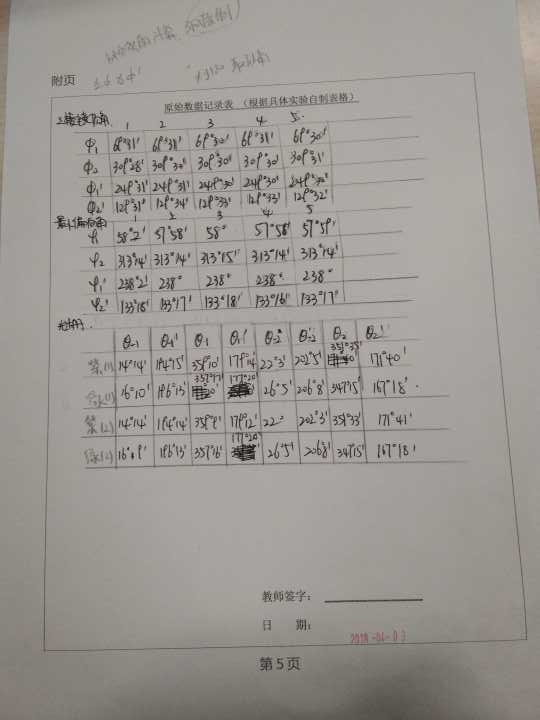 附页
原始数据记录表 （根据具体实验自制表格）
1 2 3 4 5
φ1 69°31' 69°31' 69°30' 69°31' 69°30'
φ2 309°28' 309°30' 309°30' 309°30' 309°31'
φ1' 249°31' 249°31' 249°30' 249°30'
φ2' 129°31' 129°34' 129°33' 129°33' 129°32'
最小偏向角 1 2 3 4 5
φ1 58°2' 57°58' 58° 57°58' 57°59'
φ2 313°14' 313°14' 313°15' 313°14' 313°14'
φ1' 238°2' 238° 238° 238° 238°
φ2' 133°18' 133°17' 133°18' 133°16' 133°17'
θ-1 θ-1' θ1 θ1' θ-2 θ-2' θ2 θ2'
紫(1) 14°14' 194°15' 359°10' 179°14' 22°3' 202°5' 351°35' 171°40'
绿(1) 16°10' 196°13' 177°20' 26°5' 206°8' 347°15' 167°18'
紫(2) 14°14' 194°14' 359°9' 179°12' 22° 202°3' 351°33' 171°41'
绿(2) 16°9' 196°13' 357°16' 177°20' 26°5' 206°8' 347°15' 167°18'
教师签字：
日 期：
第5页